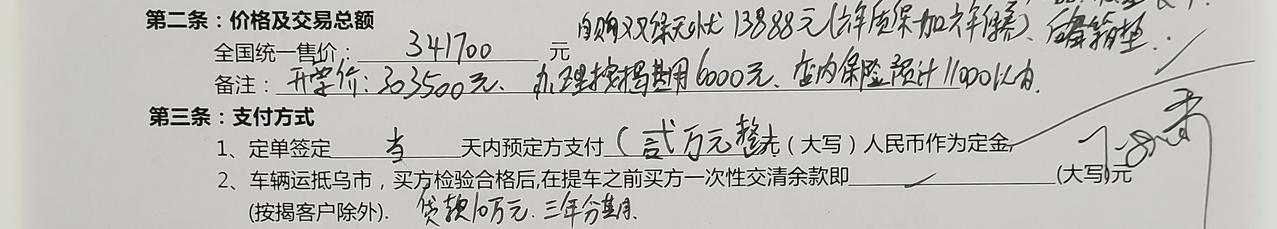 第二条：价格及交易总额
自购双保无忧13888元(六年质保加六年保养)、后备箱垫.
全国统一售价：341700元
备注：开票价：303500元、办理按揭费用6000元、店内保险预计11000以内.
第三条：支付方式
1、定单签定当天内预定方支付(贰万元整)(大写)人民币作为定金,
2、车辆运抵乌市，买方检验合格后,在提车之前买方一次性交清余款即(大写)元
(按揭客户除外). 贷款10万元.三年分期.